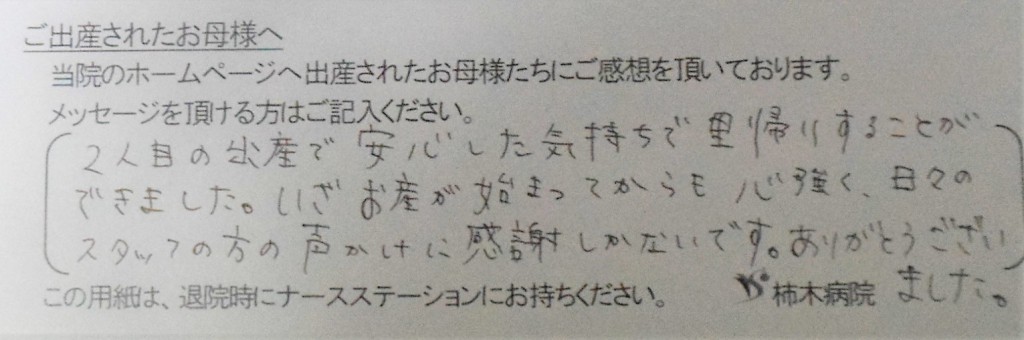 ご出産されたお母様へ
当院のホームページへ出産されたお母様たちにご感想を頂いております。
メッセージを頂ける方はご記入ください。
2人目の出産で安心した気持ちで里帰りすることが
できました。いざお産が始まってからも心強く、日々の
スタッフの方の声かけに感謝しかないです。ありがとうござい
ました。
この用紙は、退院時にナースステーションにお持ちください。
柿木病院